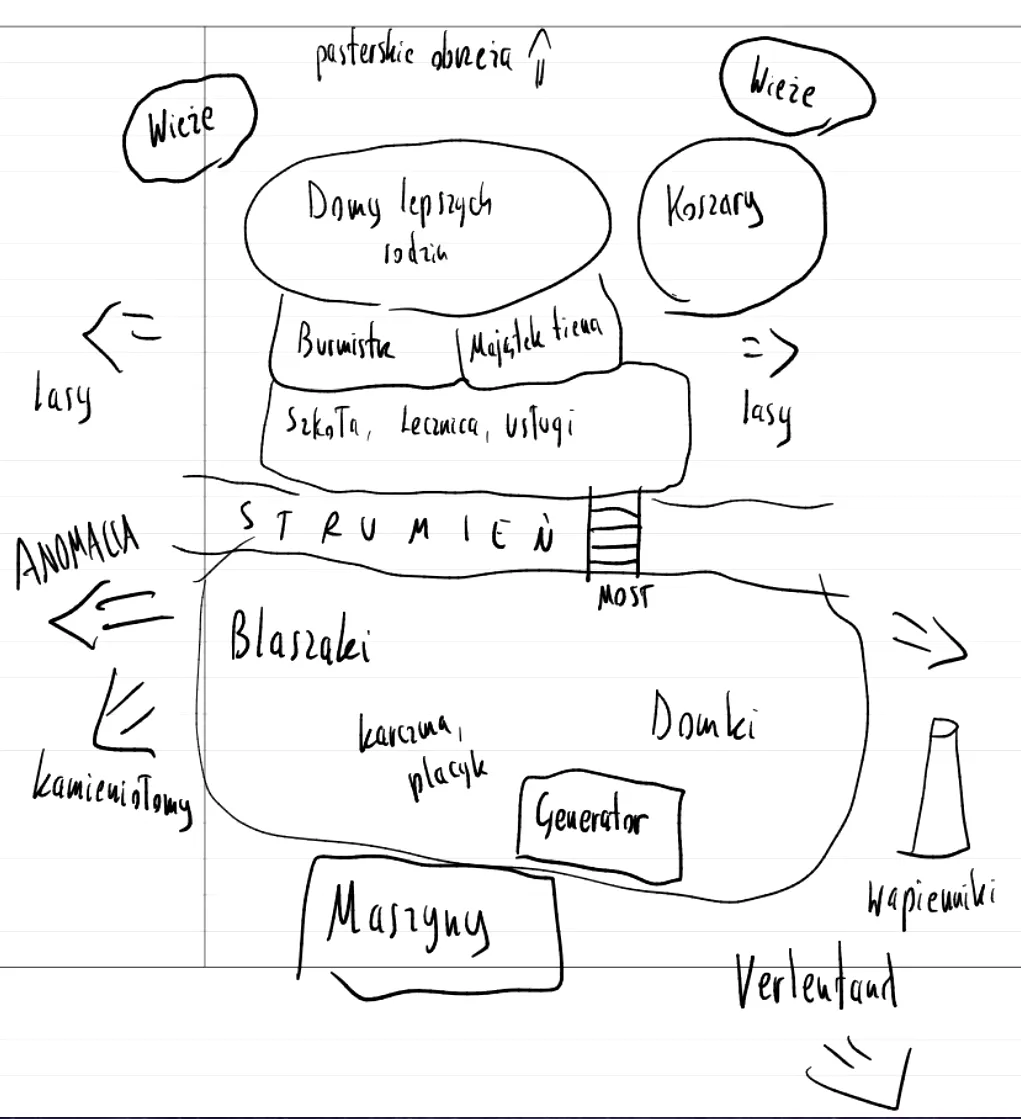 pasterskie obrzeża
Wieże
Wieże
Domy lepszych
rodzin
Koszary
Burmistrz
Majątek tiena
lasy
Szkoła, Lecznica, usługi
lasy
STRUMIEŃ
ANOMALIA
MOST
Blaszaki
Domki
karczma,
placyk
kamieniołomy
Generator
wapienniki
Maszyny
Verlenland